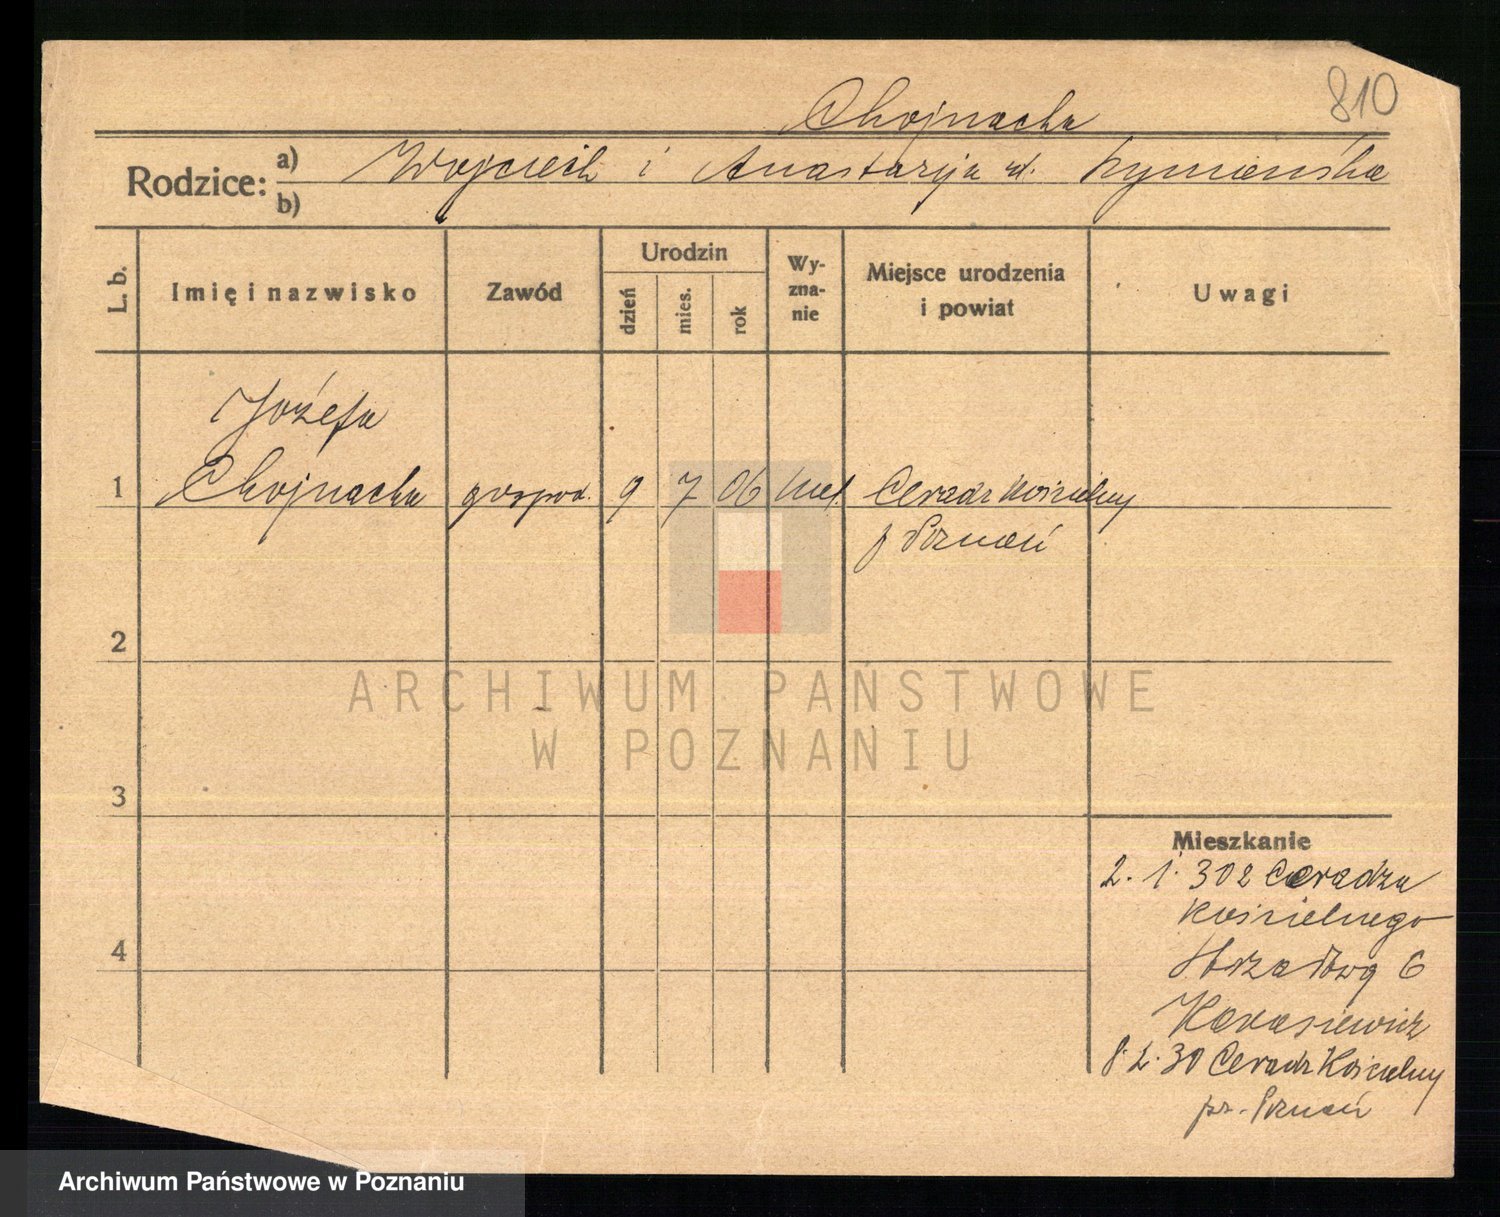 810
Chojnacka
Rodzice: a) Wojciech i Anastazja
b)
L. b.
Imię i nazwisko
Zawód
Urodzin
dzień
mies.
rok
Wy-
zna-
nie
Miejsce urodzenia
i powiat
Uwagi
Józefa
1 Chojnacka gospod. 9 7 06 Ceradz Kościelny
p Poznań
2
ARCHIWUM PAŃSTWOWE
W POZNANIU
3
4
Mieszkanie
2. 1. 30 z Ceradza
Kościelnego
6
Karasiewicz
8. 2. 30 Ceradz Kościelny
pz. Poznań
Archiwum Państwowe w Poznaniu